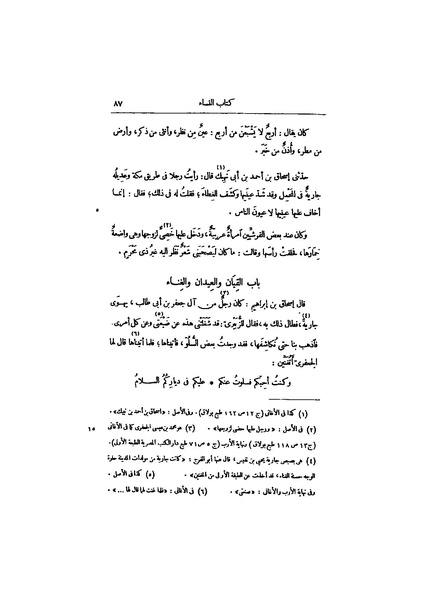 كتاب النساء ٨٧
كان يقال : أربعٌ لا يَشْبَعْنَ من أربعٍ : عينٌ من نظر، وأنثى من ذكر، وأرض
من مطر، وأُذنٌ من خَبَر .
حدّثنى إسحاق بن أحمد بن أبى نَهِيك (١) قال : رأيت رجلا فى طريق مكة وعديلُه
جاريةٌ فى المَحْمِل وقد شدّ عينيها وكشف الغِطاء؛ فقلتُ له فى ذلك؛ فقال : إنما
أخاف عليها عينيها لا عيونَ الناس . ٥
وكان عند بعض القرشيين آمرأةٌ عربيّةٌ، ودخل عليها خَصِىٌّ (٢) لزوجها وهى واضعةٌ
خِمارَها، فحلقتْ رأسَها وقالت : ما كان ليَصْحَبَنى شَعْرٌ نظر اليه غيرُ ذى مَحْرَمٍ .
باب القِيَان والعِيدان والغِناء
قال إسحاق بن إبراهيم : كان رجلٌ (٣) من آل جعفر بن أبى طالب، يهوى
جارية (٤)، فطال ذلك به، فقال للزُّبيرىّ : قد شَغَلَتْنى هذه عن ضَيْعَتى (٥) وعن كل أمرى،
فآذهب بنا حتى نُكاشِفَها، فقد وجدتُ بعض السُّلُوّ، فأتيناها؛ فلما أتيناها قال لها (٦)
الجعفرىّ : أتُغَنِّينَ :
وكنتُ أحِبُّكم فسلوتُ عنكم * عليكم فى دياركمُ السلامُ
(١) كذا فى الأغانى (ج ١٢ ص ١١٢ طبع بولاق) . وفى الأصل : «إسحاق بن أحمد بن نهيك» .
(٢) فى الأصل : «ودخل عليها خصى لزوجها» . (٣) هو محمد بن عيسى الجعفرى كما فى الأغانى ١٥
(ج ١٣ ص ١١٨ طبع بولاق) ونهاية الأرب (ج ٥ ص ٧١ طبع دار الكتب المصرية الطبعة الأولى) .
(٤) هى بصبص جارية يحيى بن نفيس، قال عنها أبو الفرج : «كانت جارية من مولدات المدينة حلوة
الوجه حسنة الغناء، قد أخذت عن الطبقة الأولى من المغنين» . (٥) كذا فى الأصل .
وفى نهاية الأرب والأغانى : «صنعتى» . (٦) فى الأغانى : «فلما غنت لها قال لها ...» .